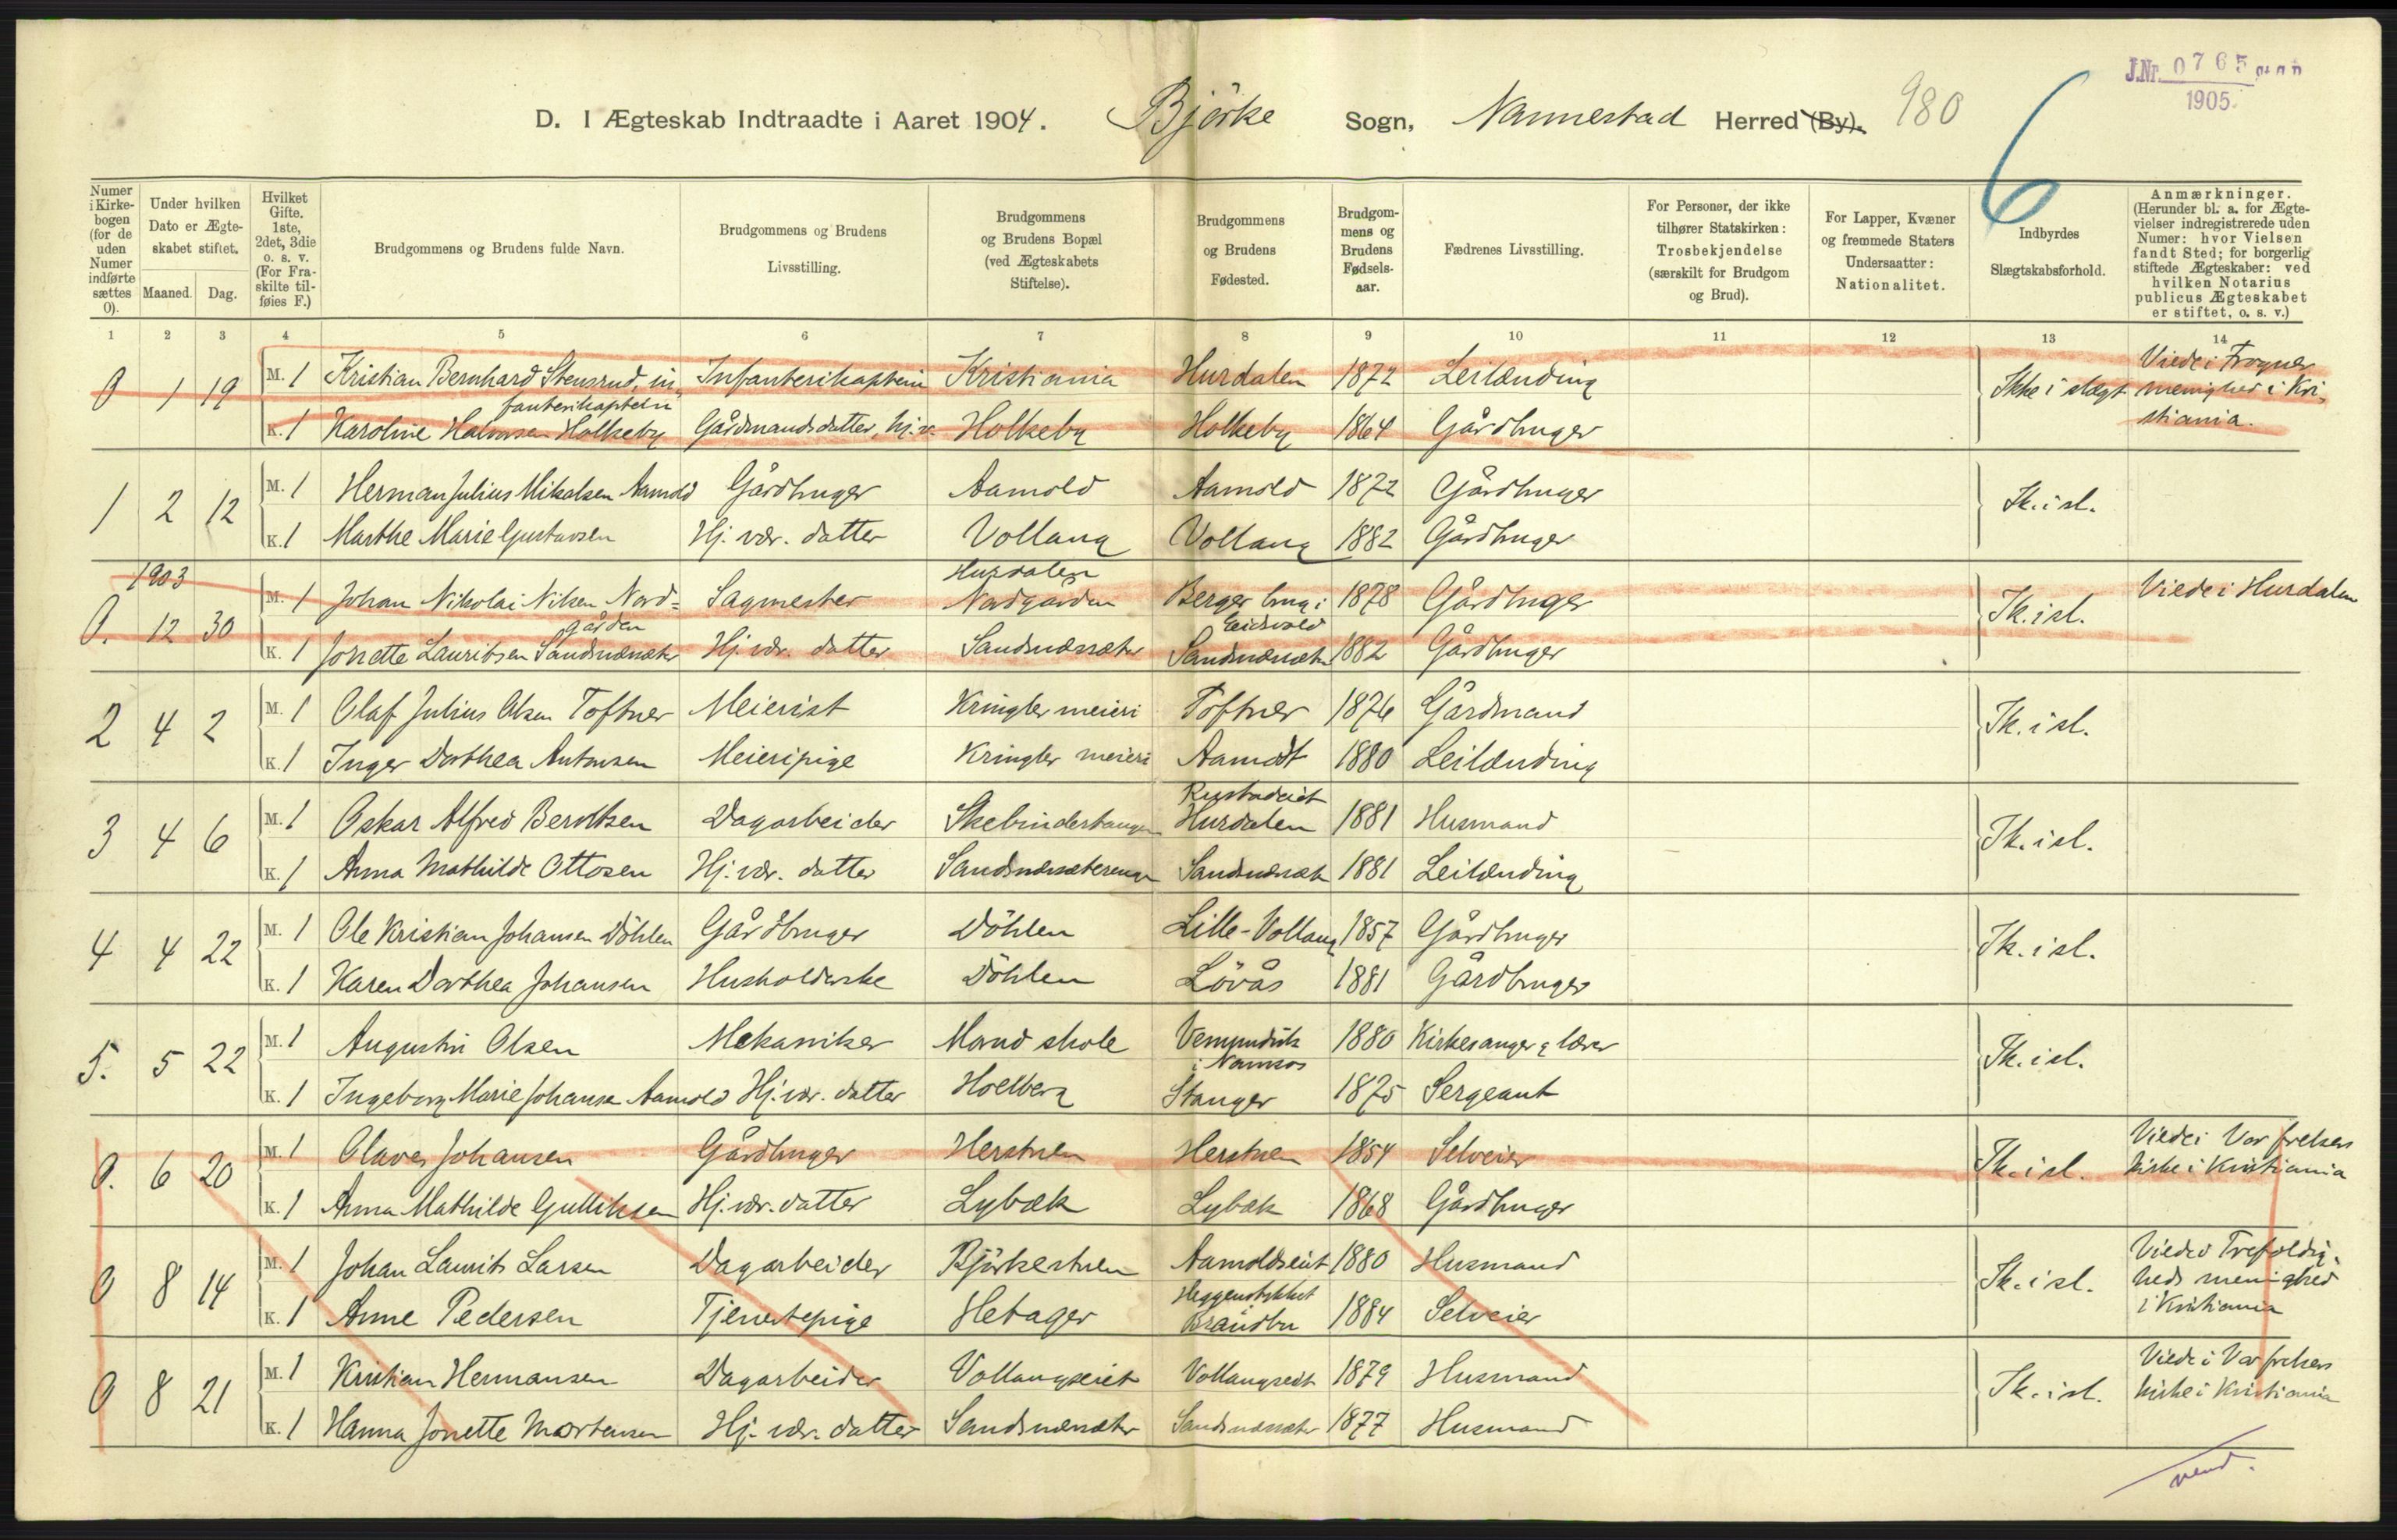 J.Nr. 0765
1905.
D. I Ægteskab Indtraadte i Aaret 1904. Bjørke Sogn, Nannestad Herred (By). 980
6
Numer i Kirkebogen (for de uden Numer indførte sættes 0).
Under hvilken Dato er Ægteskabet stiftet.
Maaned. Dag.
Hvilket Gifte. 1ste, 2det, 3die o. s. v. (For Fraskilte tilføies F.)
Brudgommens og Brudens fulde Navn.
Brudgommens og Brudens Livsstilling.
Brudgommens og Brudens Bopæl (ved Ægteskabets Stiftelse).
Brudgommens og Brudens Fødested.
Brudgommens og Brudens Fødselsaar.
Fædrenes Livsstilling.
For Personer, der ikke tilhører Statskirken: Trosbekjendelse (særskilt for Brudgom og Brud).
For Lapper, Kvæner og fremmede Staters Undersaatter: Nationalitet.
Indbyrdes Slægtskabsforhold.
Anmærkninger. (Herunder bl. a. for Ægtevielser indregistrerede uden Numer: hvor Vielsen fandt Sted; for borgerlig stiftede Ægteskaber: ved hvilken Notarius publicus Ægteskabet er stiftet, o. s. v.)
1 2 3 4 5 6 7 8 9 10 11 12 13 14
0 1 19 M. 1 Kristian Bernhard Stensrud, infanterikaptein Infanterikaptein Kristiania Hurdalen 1872 Leilænding Ikke i slægt Viede i Frogner menighed i Kristiania.
K. 1 Karoline Halvorsen Holkeby Gårdmandsdatter, hj.v. Holkeby Holkeby 1864 Gårdbruger
1 2 12 M. 1 Herman Julius Mikalsen Aamold Gårdbruger Aamold Aamold 1872 Gårdbruger Ik. i sl.
K. 1 Marthe Marie Gustavsen Hj. vær. datter Vollaug Vollaug 1882 Gårdbruger
1903
0. 12 30 M. 1 Johan Nikolai Nilsen Nordgården Sagmester Hurdalen Nordgården Berger brug i Eidsvold 1878 Gårdbruger Ik. i sl. Viede i Hurdalen
K. 1 Jonette Lauritsen Sandsnæssæter Hj. vær. datter Sandsnæssæter Sandsnæssæter 1882 Gårdbruger
2 4 2 M. 1 Olaf Julius Olsen Toftner Meierist Kringler meieri Toftner 1876 Gårdmand Ik. i sl.
K. 1 Inger Dorthea Antonsen Meieripige Kringler meieri Aamodt 1880 Leilænding
3 4 6 M. 1 Oskar Alfred Berntsen Dagarbeider Skebindertangen Rustadeiet Hurdalen 1881 Husmand Ik. i sl.
K. 1 Anna Mathilde Ottosen Hj. vær. datter Sandsnæssæterengen Sandsnæssæter 1881 Leilænding
4 4 22 M. 1 Ole Kristian Johansen Döhlen Gårdbruger Döhlen Lille-Vollaug 1857 Gårdbruger Ik. i sl.
K. 1 Karen Dorthea Johansen Husholderske Döhlen Lövås 1881 Gårdbruger
5. 5 22 M. 1 Augustin Olsen Mekaniker Maud skole Vemundvik i Namsos 1880 Kirkesanger & lærer Ik. i sl.
K. 1 Ingeborg Marie Johansen Aamold Hj. vær. datter Holberg Stanger 1875 Sergeant
0. 6 20 M. 1 Olaves Johansen Gårdbruger Herstuen Herstuen 1854 Selveier Ik. i sl. Viede i Vor frelsers kirke i Kristiania
K. 1 Anna Mathilde Gulliksen Hj. vær. datter Lybæk Lybæk 1868 Gårdbruger
0 8 14 M. 1 Johan Laurits Larsen Dagarbeider Björkestuen Aamoldseiet 1880 Husmand Ik. i sl. Viede i Trefoldigheds menighed i Kristiania
K. 1 Anne Pedersen Tjenestepige Hebager Heggenstykket Brandbu 1884 Selveier
0 8 21 M. 1 Kristian Hermansen Dagarbeider Vollaugseiet Vollaugseiet 1879 Husmand Ik. i sl. Viede i Vor frelsers kirke i Kristiania
K. 1 Hanna Jonette Mortensen Hj. vær. datter Sandsnæssæter Sandsnæssæter 1877 Husmand
vend.